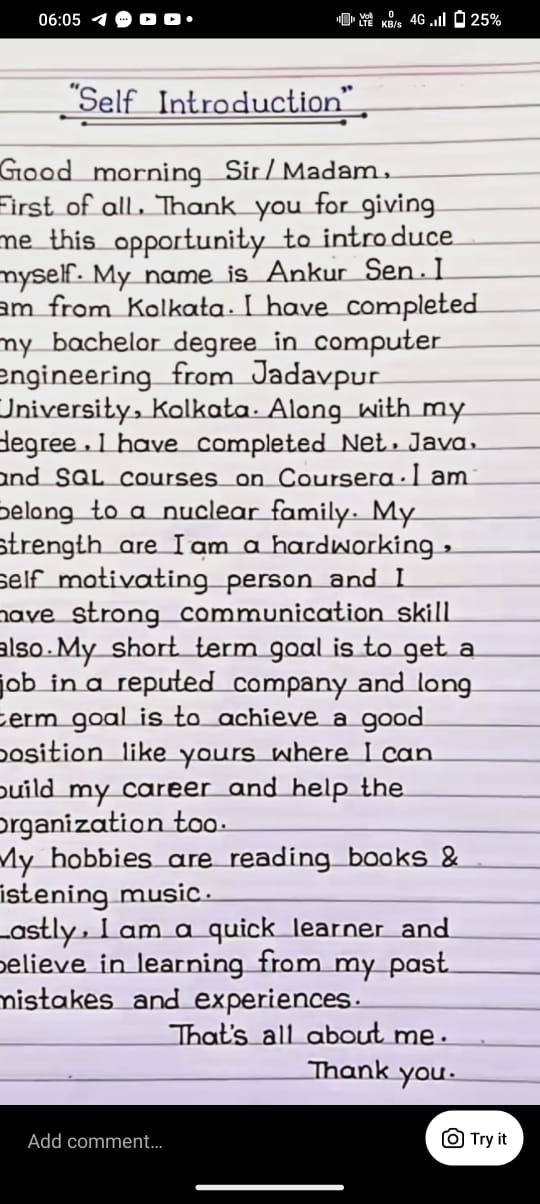 06:05
Vo)) LTE
0 KB/s
4G
25%
"Self Introduction"
Good morning Sir/Madam,
First of all, Thank you for giving
me this opportunity to introduce
myself. My name is Ankur Sen. I
am from Kolkata. I have completed
my bachelor degree in computer
engineering from Jadavpur
University, Kolkata. Along with my
degree, I have completed Net, Java,
and SQL courses on Coursera. I am
belong to a nuclear family. My
strength are I am a hardworking,
self motivating person and I
have strong communication skill
also. My short term goal is to get a
job in a reputed company and long
term goal is to achieve a good
position like yours where I can
build my career and help the
organization too.
My hobbies are reading books &
listening music.
Lastly, I am a quick learner and
believe in learning from my past
mistakes and experiences.
That's all about me.
Thank you.
Add comment...
Try it